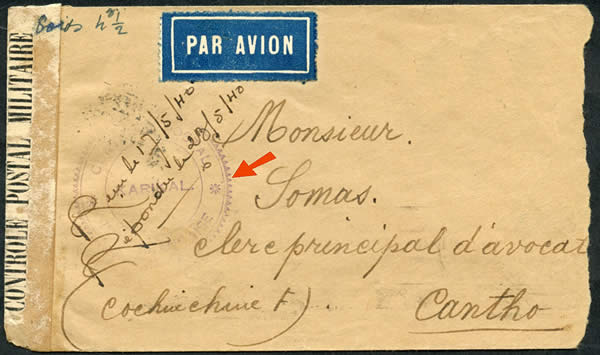 Poids 4 g 1/2
PAR AVION
CONTROLE POSTAL MILITAIRE
Reçu le 17/5/40
Répondu le 29/5/40
KARIKAL.
Monsieur.
Somas.
clerc principal d'avocat
(Cochinchine F)
Cantho